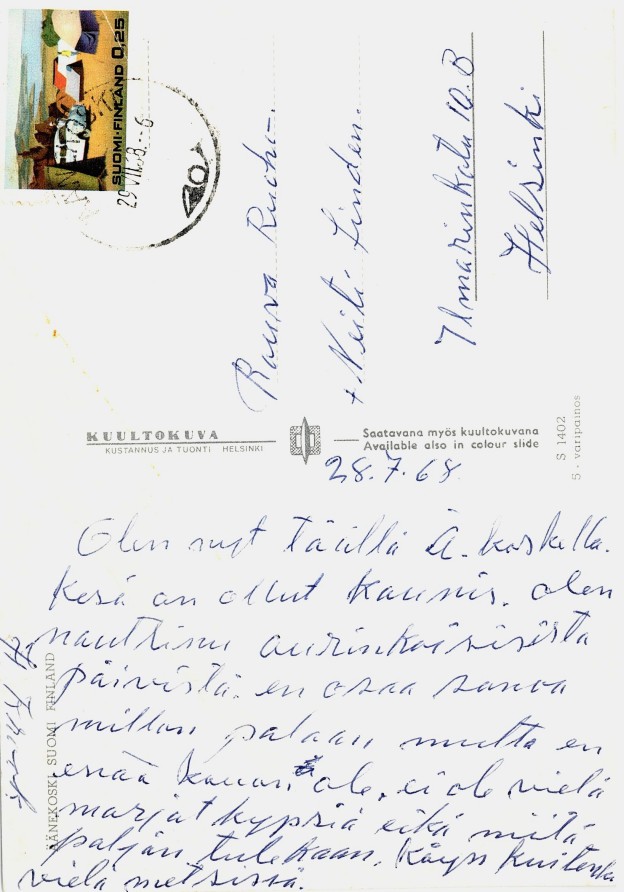 SUOMI-FINLAND 0,25
29.VII.68.--6
Rauva Ruoho-.
+ Neiti Linden.
Ilmarinkatu 10.B
Helsinki
KUULTOKUVA
KUSTANNUS JA TUONTI HELSINKI
Saatavana myös kuultokuvana
Available also in colour slide
S 1402
5 - väripainos
28.7.68
Olen nyt täällä Ä-koskella.
Kesä on ollut kaunis. olen
nauttinu aurinkoisisista
päivistä. en osaa sanoa
millon palaan mutta en
enää kauan ole. ei ole vielä
marjat kypsiä eikä niitä
paljon tulekaan. Käyn kuitenkin
vielä metsissä.
ÄÄNEKOSKI, SUOMI FINLAND